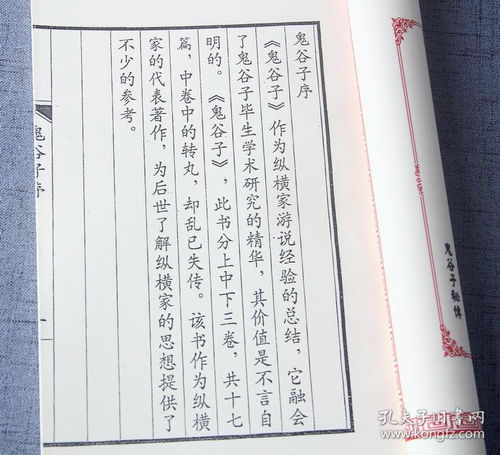 鬼谷子序
《鬼谷子》作为纵横家游说经验的总结，它融会
了鬼谷子毕生学术研究的精华，其价值是不言自
明的。《鬼谷子》，此书分上中下三卷，共十七
篇，中卷中的转丸，却乱已失传。该书作为纵横
家的代表著作，为后世了解纵横家的思想提供了
不少的参考。
鬼谷子序
一
鬼谷子秘傳
孔夫子旧书网
www.kongfz.com